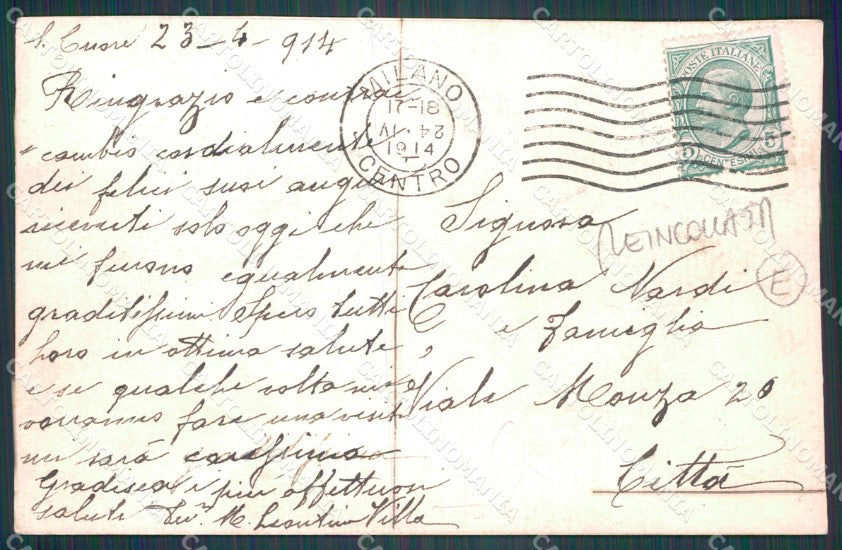 S. Cuore 23-4-914
Ringrazio e contrac
cambio cordialmente
dei felici suoi auguri
ricevuti solo oggi che
mi furono egualmente
graditissimi Spero tutti
loro in ottima salute,
e se qualche volta mi
vorranno fare una visita
mi sarà carissima
Gradisca i più affettuosi
saluti M. Leontina Villa
MILANO
17-18
24. IV
1914
CENTRO
POSTE ITALIANE
5 CENTESIMI 5
REINCOLLATI
E
Signora
Carolina Nardi
e Famiglia
Viale Monza 20
Città
CARTOLINOMANIA